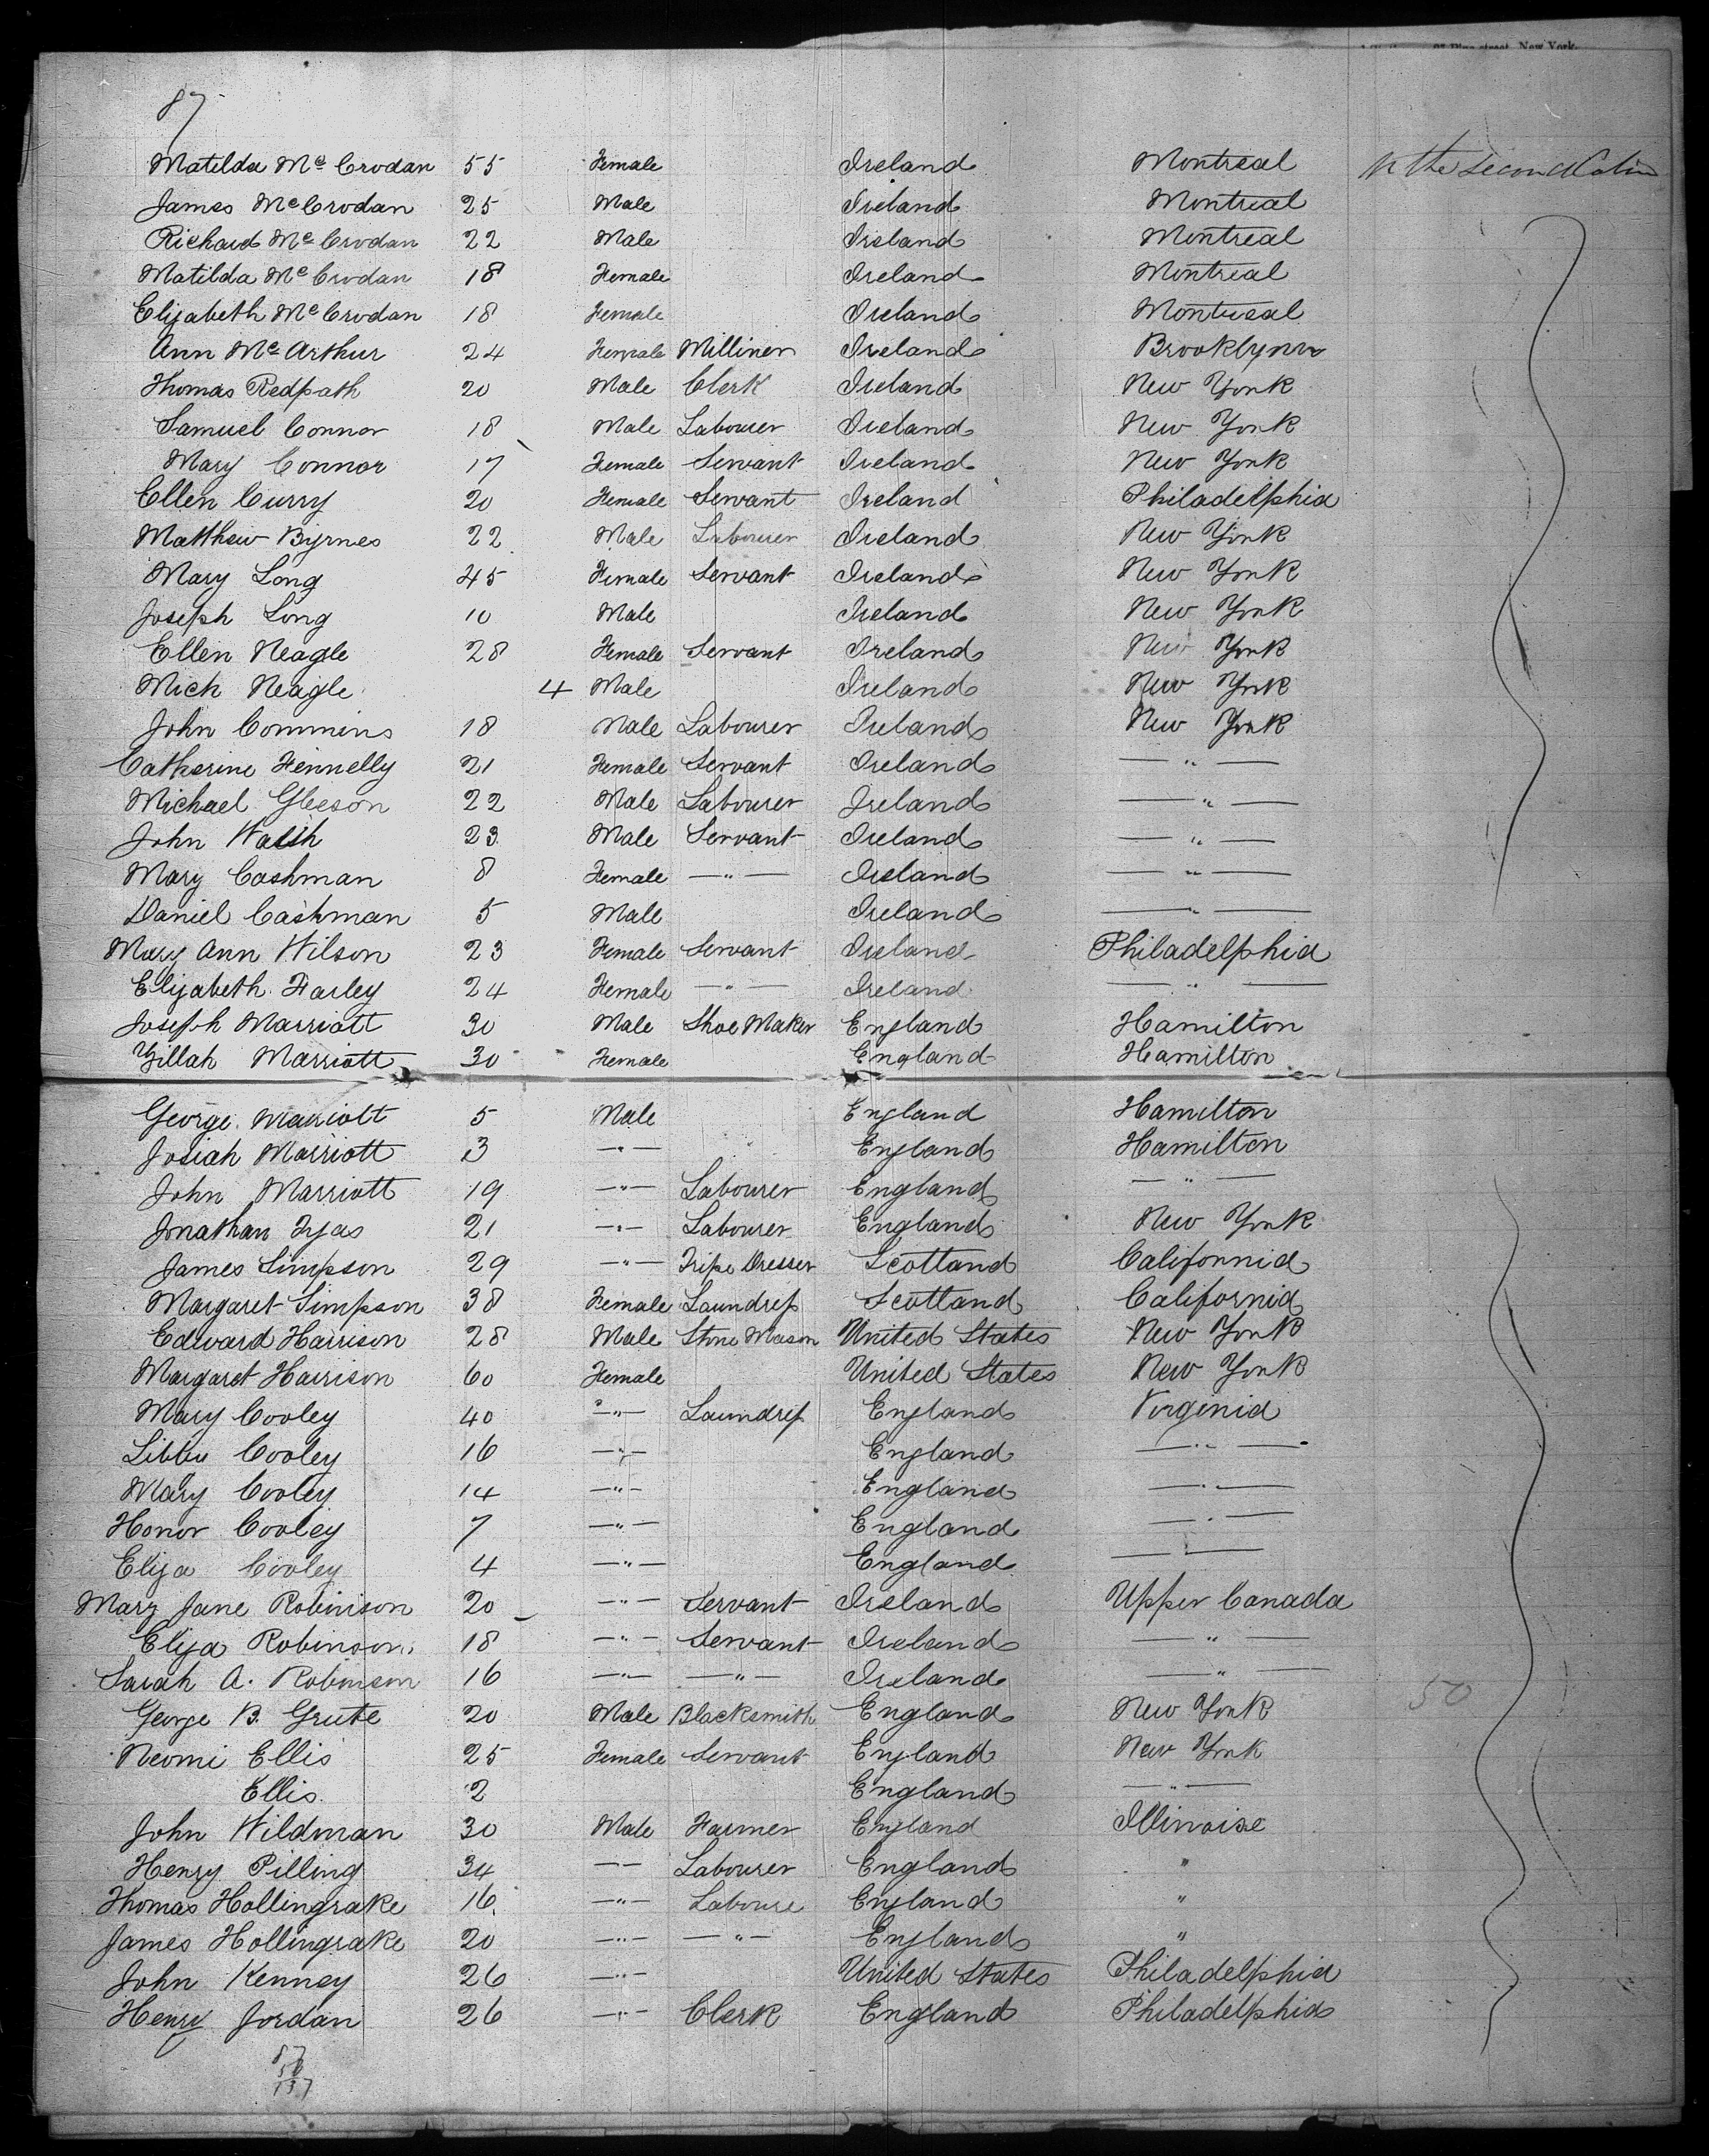 Pine street, New York.
87
Matilda Mc Crodan 55 Female Ireland Montreal In the second Cabin
James McCrodan 25 Male Ireland Montreal
Richard Mc Crodan 22 Male Ireland Montreal
Matilda Mc Crodan 18 Female Ireland Montreal
Elizabeth Mc Crodan 18 Female Ireland Montreal
Ann Mc Arthur 24 Female Milliner Ireland Brooklynn
Thomas Redpath 20 Male Clerk Ireland New York
Samuel Connor 18 Male Labourer Ireland New York
Mary Connor 17 Female Servant Ireland New York
Ellen Curry 20 Female Servant Ireland Philadelphia
Matthew Byrnes 22 Male Labourer Ireland New York
Mary Long 45 Female Servant Ireland New York
Joseph Long 10 Male Ireland New York
Ellen Neagle 28 Female Servant Ireland New York
Mick Neagle 4 Male Ireland New York
John Commins 18 Male Labourer Ireland New York
Catherine Fennelly 21 Female Servant Ireland — " —
Michael Gleeson 22 Male Labourer Ireland — " —
John Walsh 23 Male Servant Ireland — " —
Mary Cashman 8 Female — " — Ireland — " —
Daniel Cashman 5 Male Ireland — " —
Mary Ann Wilson 23 Female Servant Ireland Philadelphia
Elizabeth Farley 24 Female — " — Ireland — " —
Joseph Marriott 30 Male Shoe Maker England Hamilton
Zillah Marriott 30 Female England Hamilton
George Marriott 5 Male England Hamilton
Josiah Marriott 3 — " — England Hamilton
John Marriott 19 — " — Labourer England — " —
Jonathan Tyas 21 — " — Labourer England New York
James Simpson 29 — " — Tripe Dresser Scotland California
Margaret Simpson 38 Female Laundress Scotland California
Edward Harrison 28 Male Stone Mason United States New York
Margaret Harrison 60 Female United States New York
Mary Cooley 40 — " — Laundress England Virginia
Cooley 16 — " — England — " —
Mary Cooley 14 — " — England — " —
Honor Cooley 7 — " — England — " —
Eliza Cooley 4 — " — England — " —
Mary Jane Robinson 20 — " — Servant Ireland Upper Canada
Eliza Robinson 18 — " — Servant Ireland — " —
Sarah A. Robinson 16 — " — — " — Ireland — " —
George B. Grute 20 Male Blacksmith England New York 50
Neomi Ellis 25 Female Servant England New York
Ellis 2 England — " —
John Wildman 30 Male Farmer England Illinoise
Henry Pilling 34 — — Labourer England "
Thomas Hollingrake 16 — " — Laboure England "
James Hollingrake 20 — " — — " — England "
John Kenney 26 — " — United States Philadelphia
Henry Jordan 26 — " — Clerk England Philadelphia
87
50
137